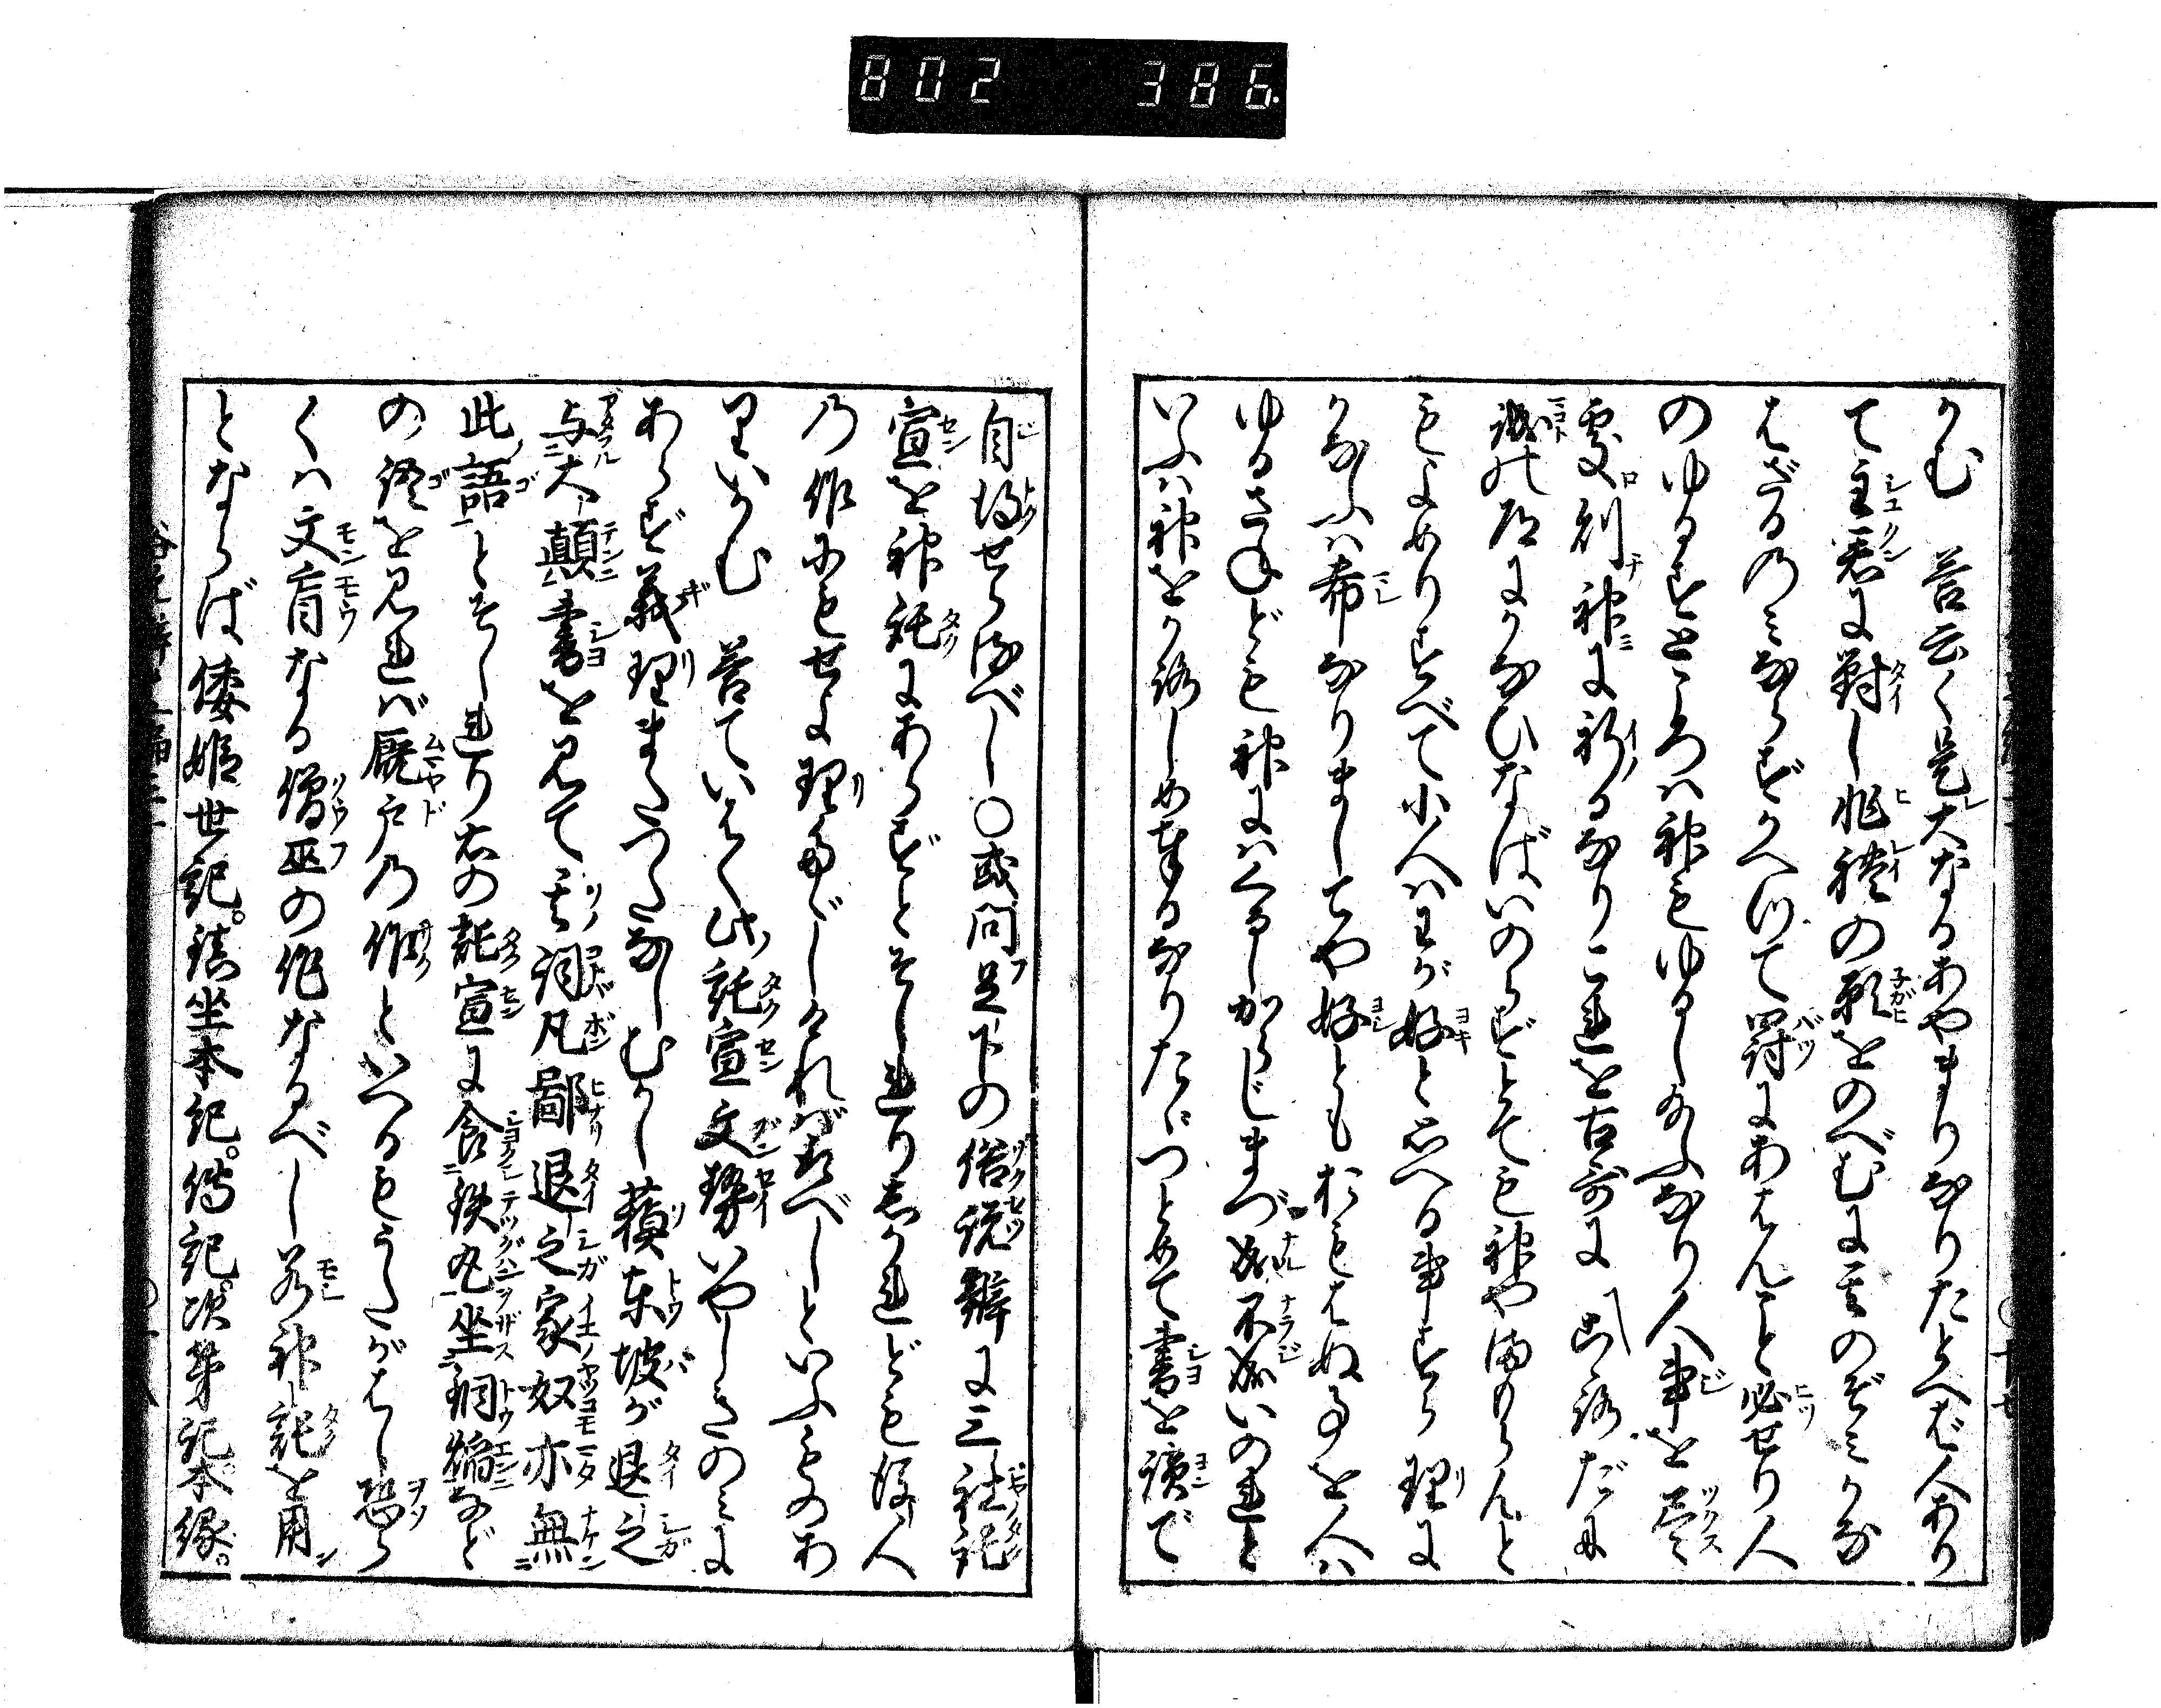 802 386
うむ 答云く是大なるあやまりなりたとへば人あり
て主君に對し非禮の願をのべむに其のぞミうな
はざるのミならずかへつて罸にあはんこと必せり人
のゆるすところハ神もゆるし給ふなり人事を尽
處則神に祈るなりこれを古哥に 心だに
誠の道にかなひなばいのらずとても神やまもらんと
もよめりすべて小人ハわが好と思へる事すら理に
かなふハ希なりましてや好ともおもはぬ事を人ハ
ゆるさねども神にハくるしからじまづ成不成いのれと
いふハ神をかろしめ奉るなりたゞつとめて書を讀で
自得せらるべし○或問足下の俗説辨に三社託
宣を神託にあらずとそしれり志かれども後人
乃作にもせよ理たゞしければ取べしといふものあ
りいかむ 答ていはく此託宣文勢いやしきのミに
あらず義理またつたなしむかし蘓東坡が退之
与大顛書を見て其詞凡鄙退之家奴亦無
此語とそしれり右の託宣に食鉄丸坐銅焔など
の語を見れば厩戸乃作といへるもうたがはし恐ら
くハ文盲なる僧巫の作なるべし若神託を用ン
とならば倭姫世記。鎮坐本記。傳記。次第記。本縁。